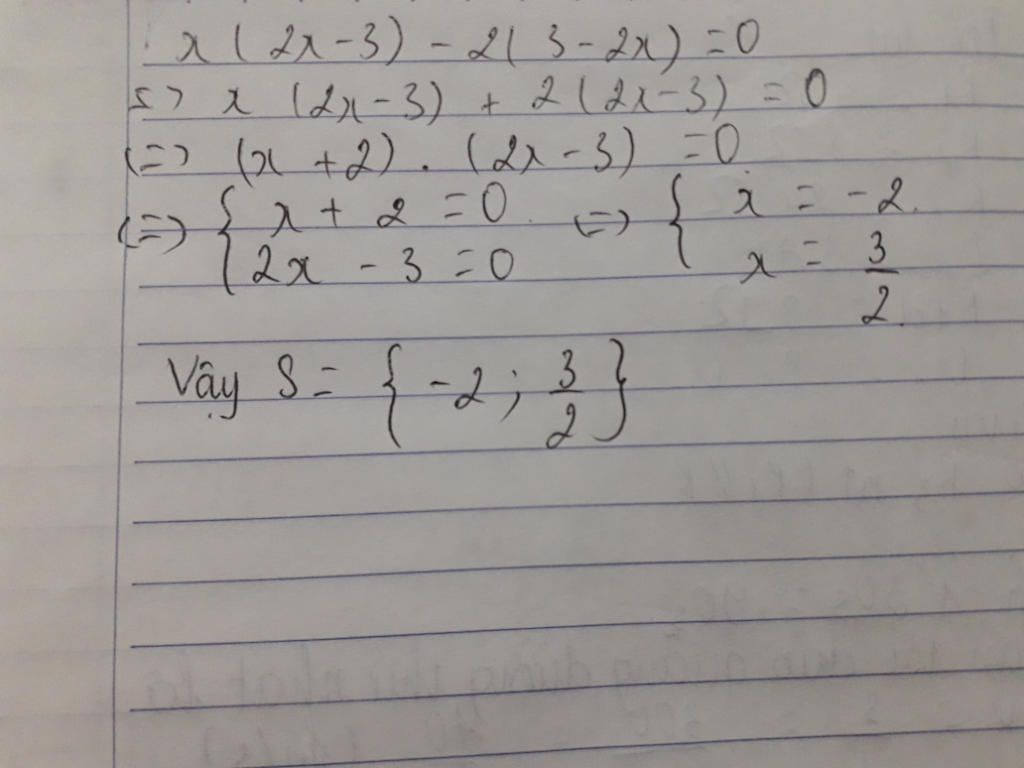 x ( 2x - 3 ) - 2 ( 3 - 2x ) = 0
<=> x ( 2x - 3 ) + 2 ( 2x - 3 ) = 0
<=> ( x + 2 ) . ( 2x - 3 ) = 0
<=> { x + 2 = 0 <=> { x = -2
2x - 3 = 0 x = 3/2
Vậy S = { -2 ; 3/2 }